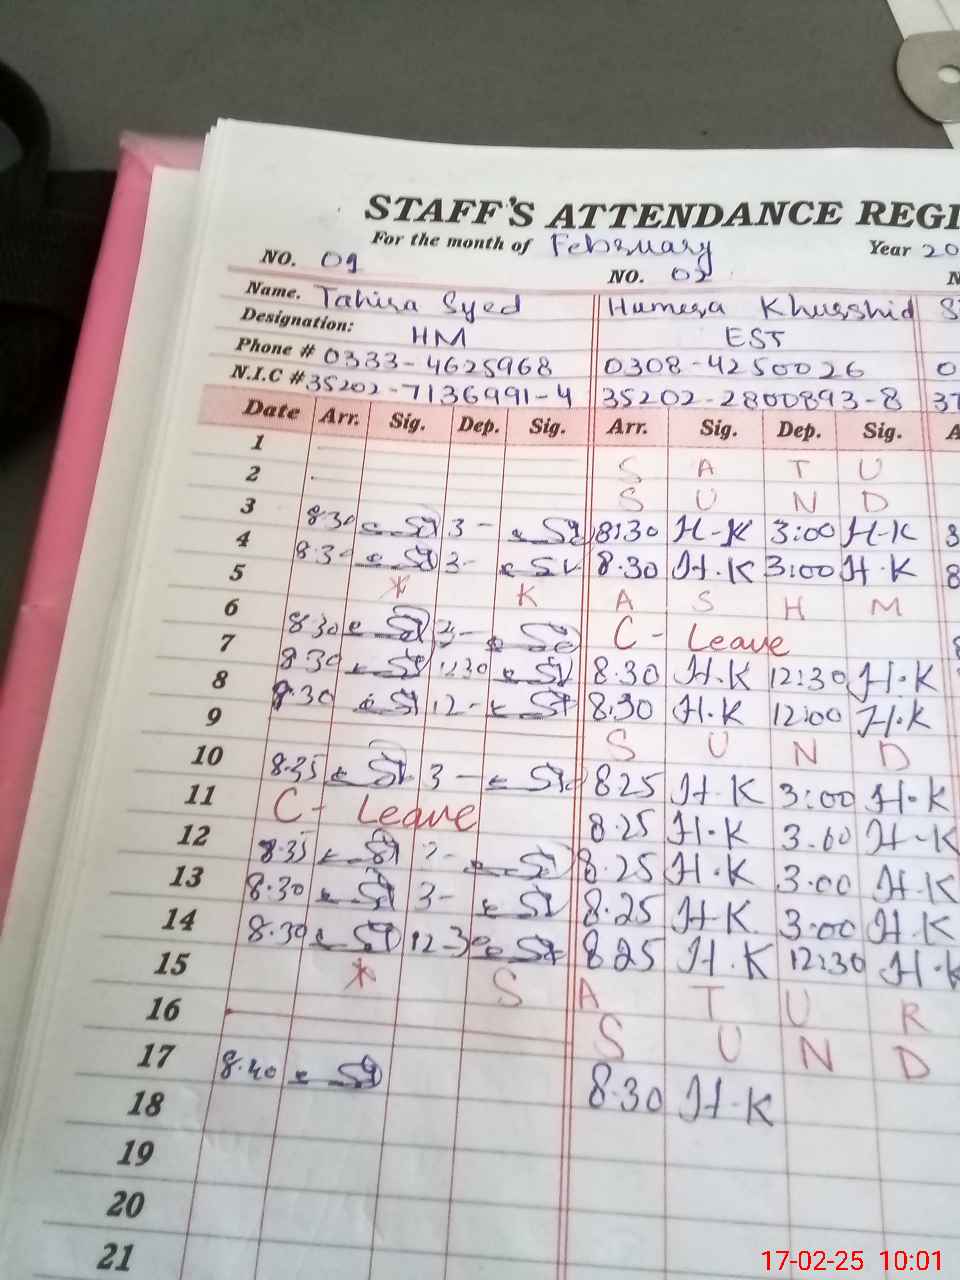 STAFF'S ATTENDANCE REGI
For the month of February Year 20
NO. 09 NO. 02
Name. Tahira Syed Humera Khurshid
Designation: HM EST
Phone # 0333-4625968 0308-4250026 0
N.I.C # 35202-7136991-4 35202-2800893-8 37
Date Arr. Sig. Dep. Sig. Arr. Sig. Dep. Sig. A
1 S A T U
2 S U N D
3 8:30 3- 8:30 H-K 3:00 H-K
4 8:30 3- 8.30 H.K 3:00 H.K
5 K A S H M
6 8:30 3- C- Leave
7 8.30 12:30 8.30 H.K 12:30 H.K
8 8:30 12- 8.30 H.K 12:00 H.K
9 S U N D
10 8.35 3- 8.25 H.K 3:00 H.K
11 C- Leave 8.25 H.K 3.00 H-K
12 8.35 8.25 H.K 3.00 H.K
13 8.30 3- 8.25 H.K 3:00 H.K
14 8.30 12:30 8.25 H.K 12:30 H.K
15 S A T U R
16 S U N D
17 8.40 8.30 H.K
18
19
20
21
17-02-25 10:01